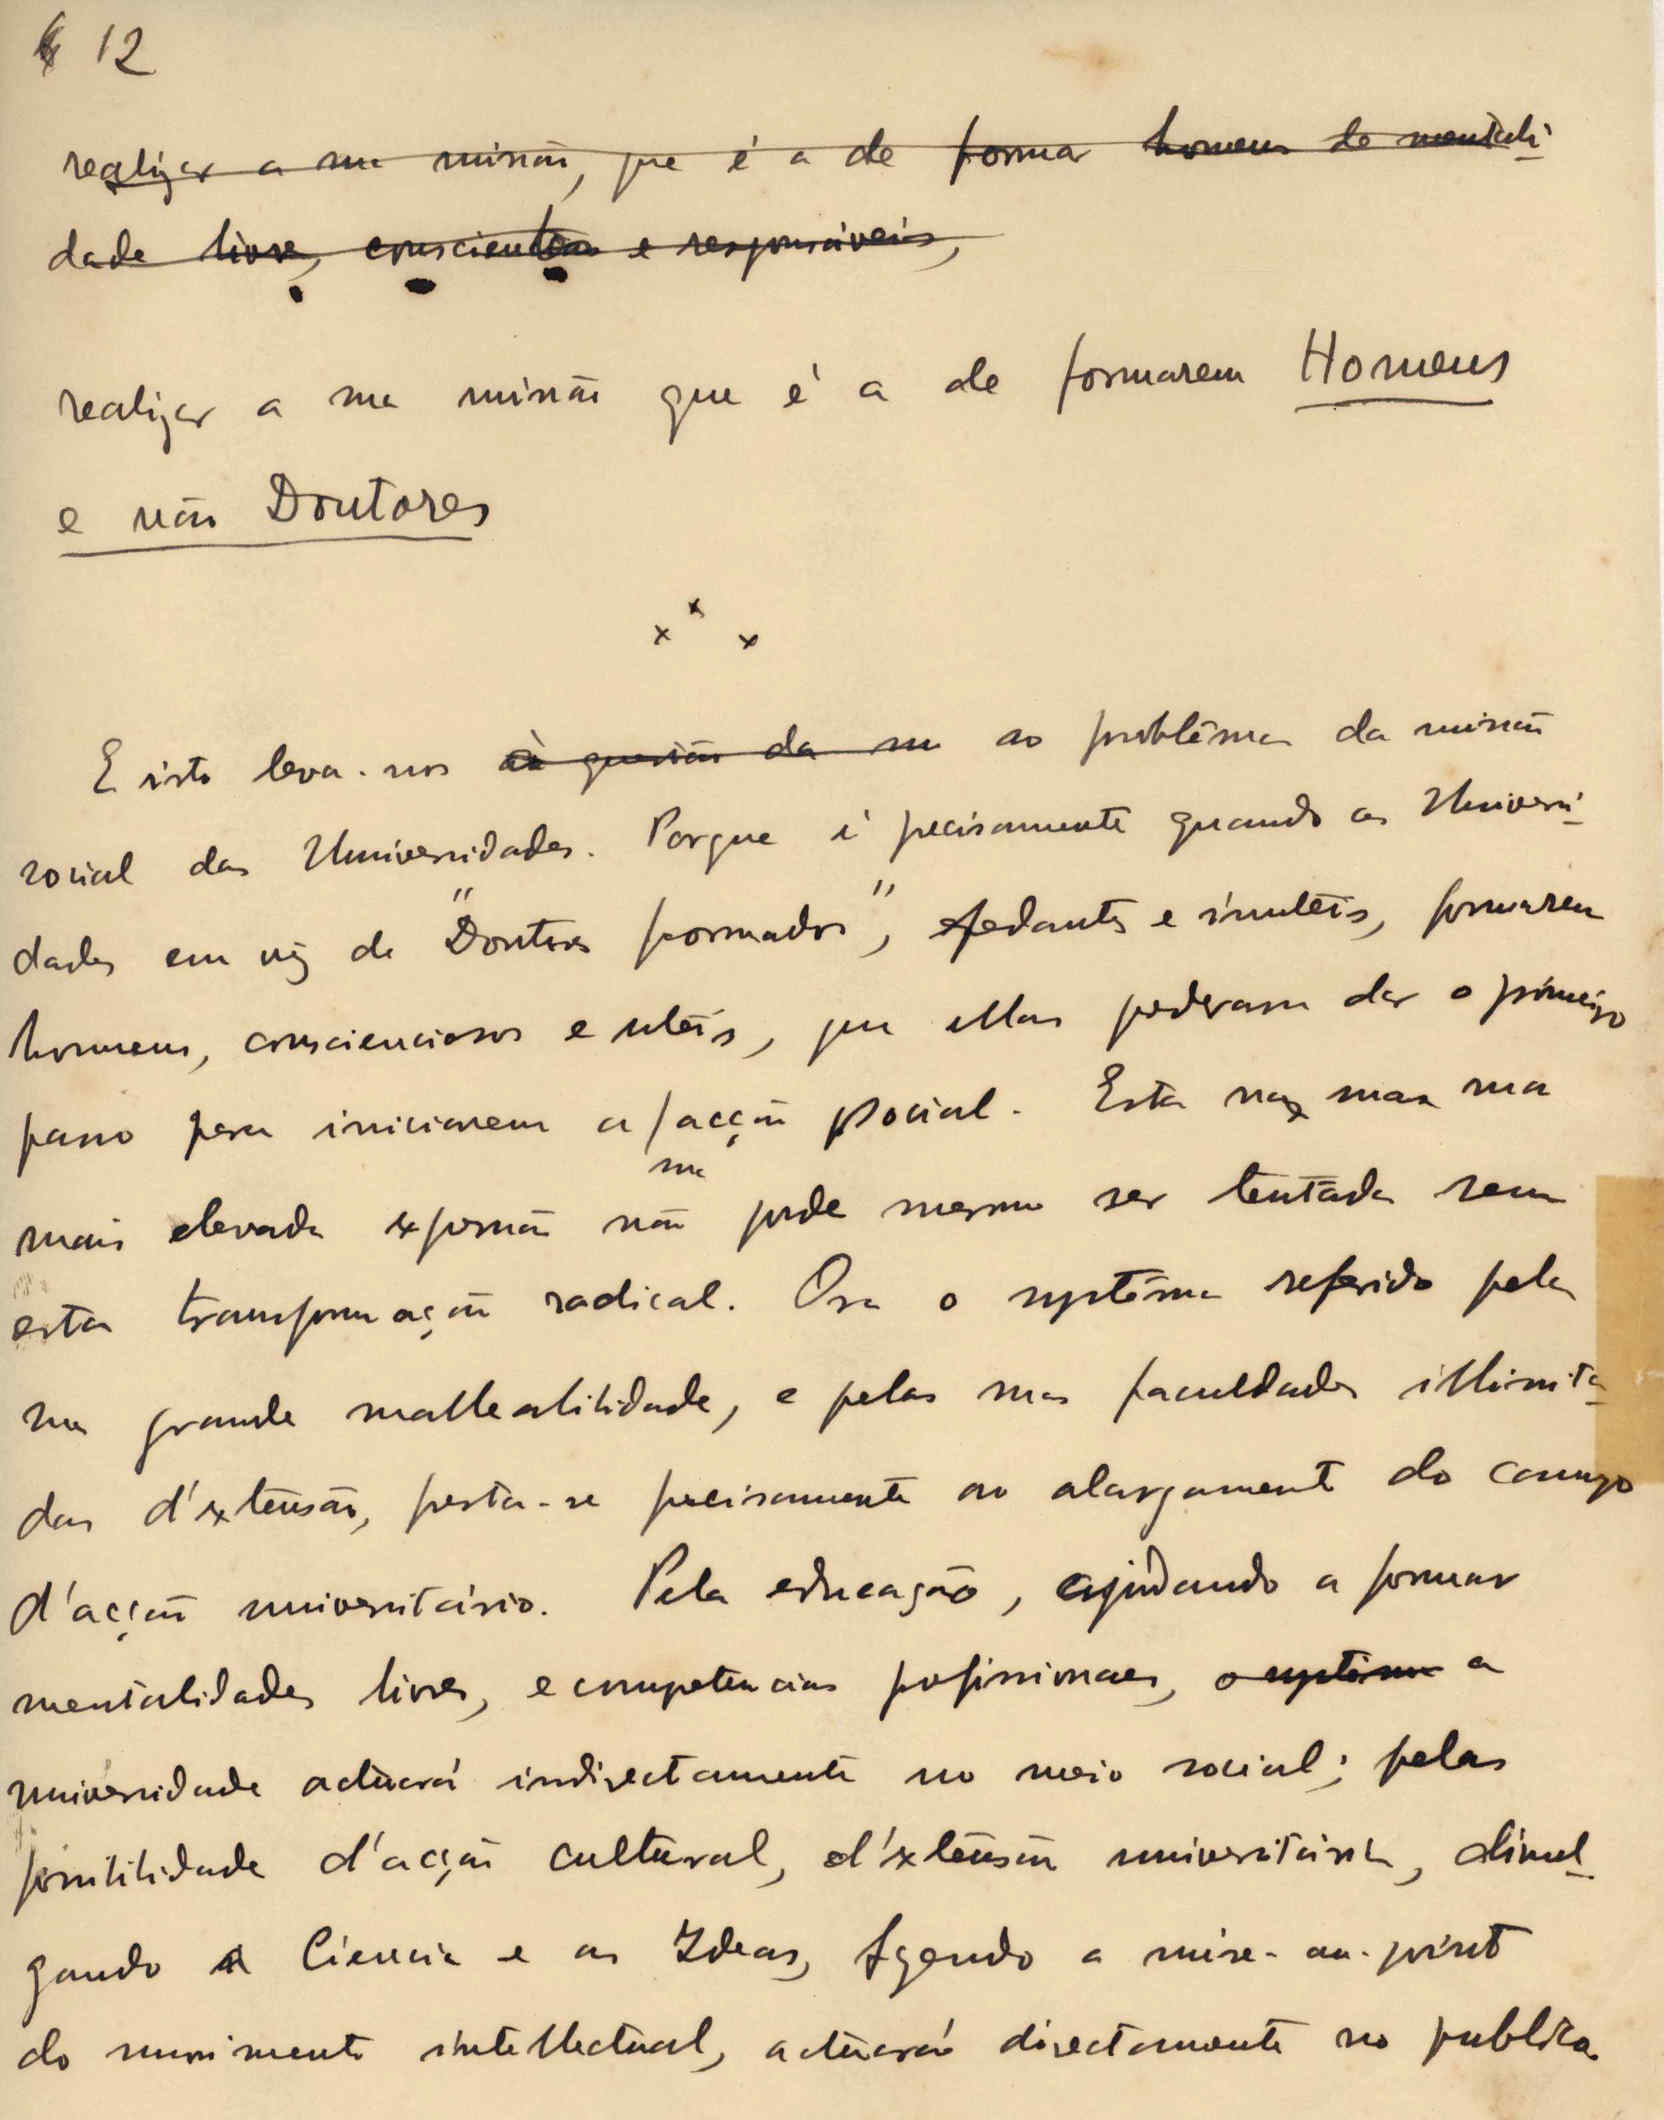 12
realizar a sua missão, que é a de formar homens de mentali-
dade livre, conscientes e responsáveis,
realizar a sua missão que é a de formarem Homens
e não Doutores
x x x
E isto leva-nos à questão da su ao problêma da missão
social das Universidades. Porque é precisamente quando as Universi-
dades em vez de "Doutores formados", pedantes e inuteis, formarem
homens, conscienciosos e uteis, que ellas poderam dar o primeiro
passo para iniciarem a acção social. Esta na sua
sua
mais elevada expressão não pode mesmo ser tentada sem
esta transformação radical. Ora o systêma referido pela
sua grande malleabilidade, e pelas suas faculdades illimita-
das d'extensão, presta-se precisamente ao alargamento do campo
d'acção universitário. Pela educação, ajudando a formar
mentalidades livres, e competencias profissionaes, o systêma a
universidade actuará indirectamente no meio social; pelas
possibilidade d'acção cultural, d'extensão universitária, divul-
gando a Ciencia e as Ideas, fazendo a mise-au-point
do movimento intellectual, actuará directamente no publico